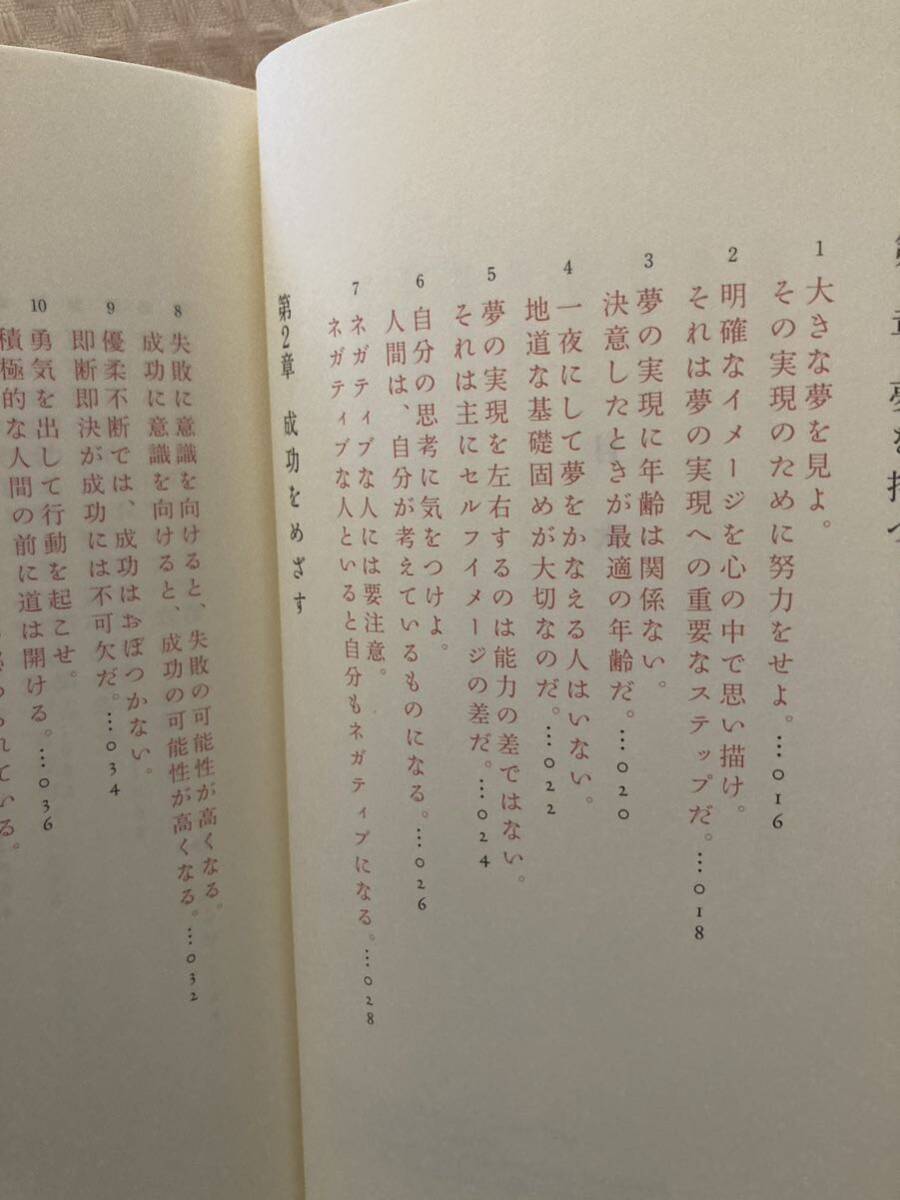 章 夢を持つ
1
大きな夢を見よ。
その実現のために努力をせよ。…016
2
明確なイメージを心の中で思い描け。
それは夢の実現への重要なステップだ。…018
3
夢の実現に年齢は関係ない。
決意したときが最適の年齢だ。…020
4
一夜にして夢をかなえる人はいない。
地道な基礎固めが大切なのだ。…022
5
夢の実現を左右するのは能力の差ではない。
それは主にセルフイメージの差だ。…024
6
自分の思考に気をつけよ。
人間は、自分が考えているものになる。…026
7
ネガティブな人には要注意。
ネガティブな人といると自分もネガティブになる。…028
第2章 成功をめざす
8
失敗に意識を向けると、失敗の可能性が高くなる。
成功に意識を向けると、成功の可能性が高くなる。…032
9
優柔不断では、成功はおぼつかない。
即断即決が成功には不可欠だ。…034
10
勇気を出して行動を起こせ。
積極的な人間の前に道は開ける。…036